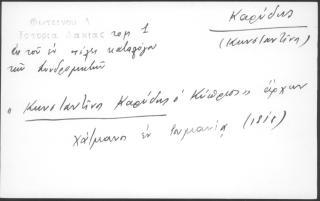 Φωτεινού Δ
Ιστορία Δακίας τομ 1
Εκ του εν τέλει καταλόγου
των συνδρομητών
Καρύδης
(Κωνσταντίνος)
" Κωνσταντίνος Καρύδης ο Κύπριος άρχων
χάτμανος εν Ρουμανία (181